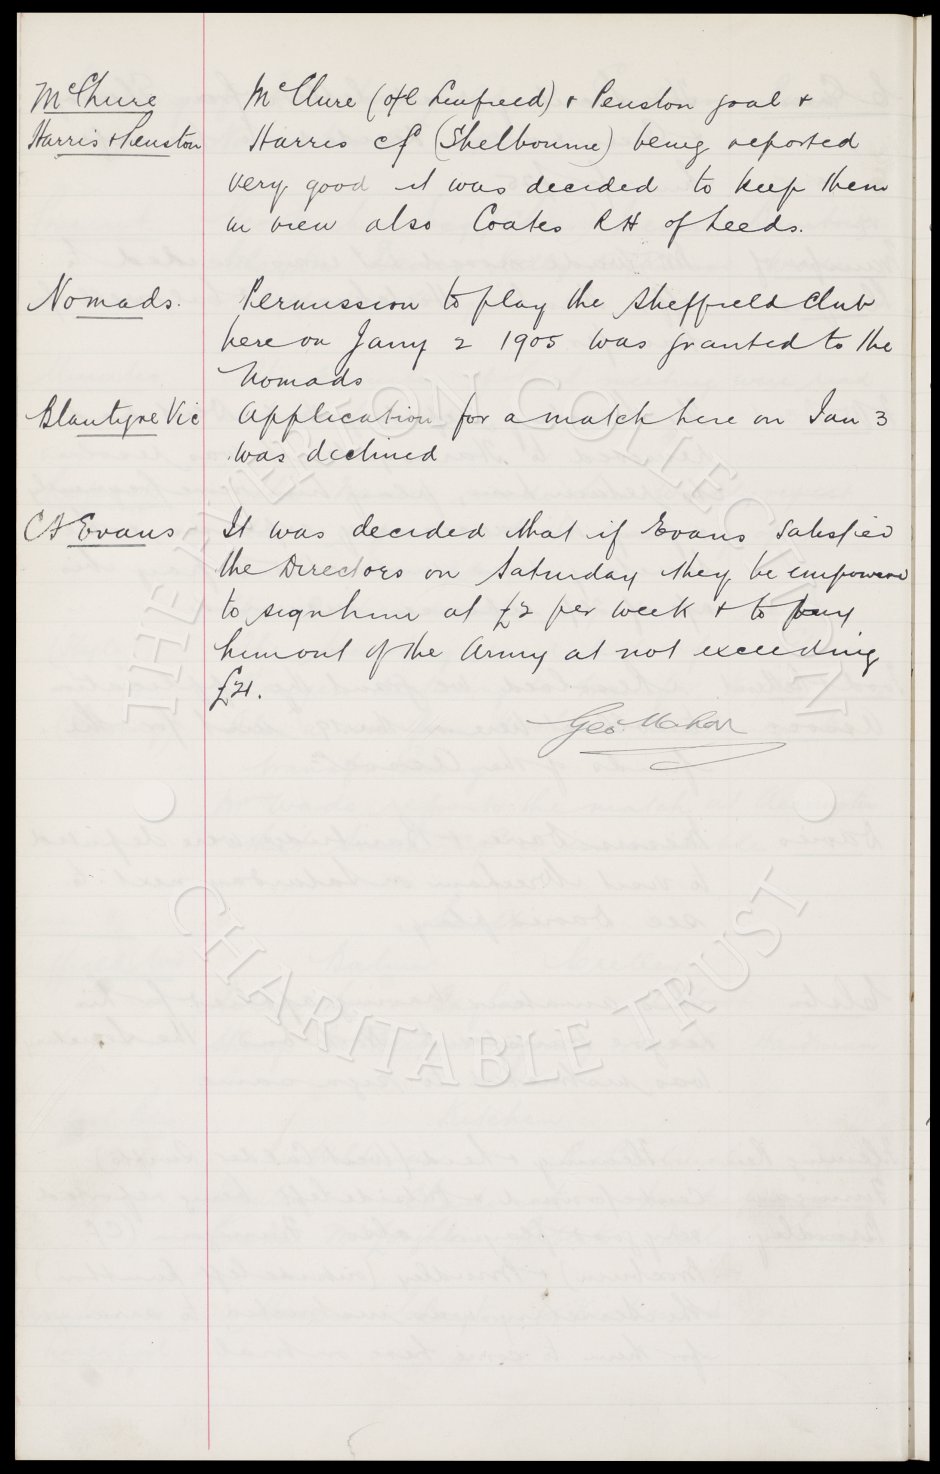 McClure
Harris & Penston
McClure (o/l Linfield) & Penston goal &
Harris cf (Shelbourne) being reported
very good it was decided to keep them
in view also Coates RH of Leeds.
Nomads.
Permission to play the Sheffield Club
here on Jany 2 1905 was granted to the
Nomads
Blantyre Vic
Application for a match here on Jan 3
was declined
C A Evans
It was decided that if Evans satisfied
the Directors on Saturday they be empowered
to sign him at £2 per week & to buy
him out of the Army at not exceeding
£21.
Geo. Mahon
THE EVERTON COLLECTION
CHARITABLE TRUST